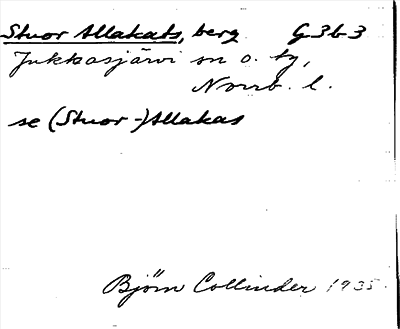 Stuor Allakats, berg G3b3
Jukkasjärvi sn o. tg,
Norrb. l.
se (Stuor-)Allakas
Björn Collinder 1935.